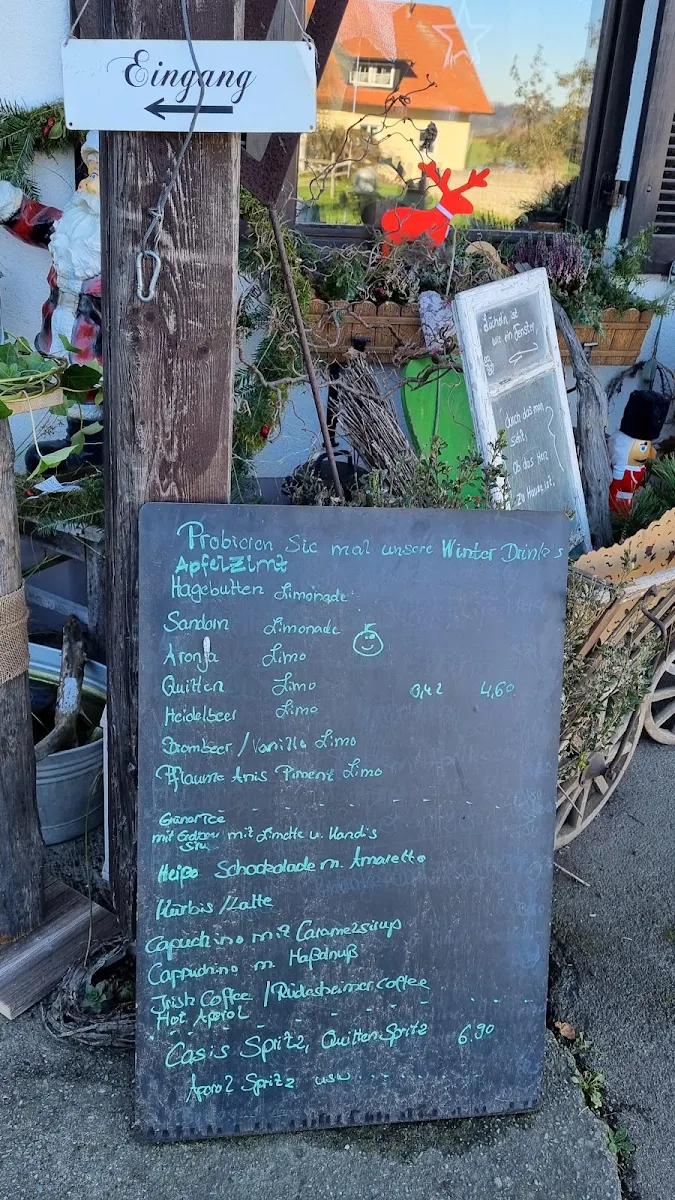 Eingang
Lächeln ist
wie ein Fenster,
durch das man
sieht,
Ob das Herz
zu Hause ist.
Probieren Sie mal unsere Winter Drinks
Apfelzimt
Hagebutten Limonade
Sandorn Limonade
Aronja Limo
Quitten Limo 0,4l 4,60
Heidelbeer Limo
Brombeer / Vanille Limo
Pflaume Anis Piment Limo
Grüner Tee
mit mit Limette u. Kandis
Heiße Schockolade m. Amaretto
Kürbis / Latte
Capuchino mit Caramelsirup
Cappuchino m. Haßelnuß
Irish Coffee / Rüdesheimer Coffee
Hot Aperol
Casis Spritz, Quitten Spritz 6.90
Aperol Spritz usw. . - . .